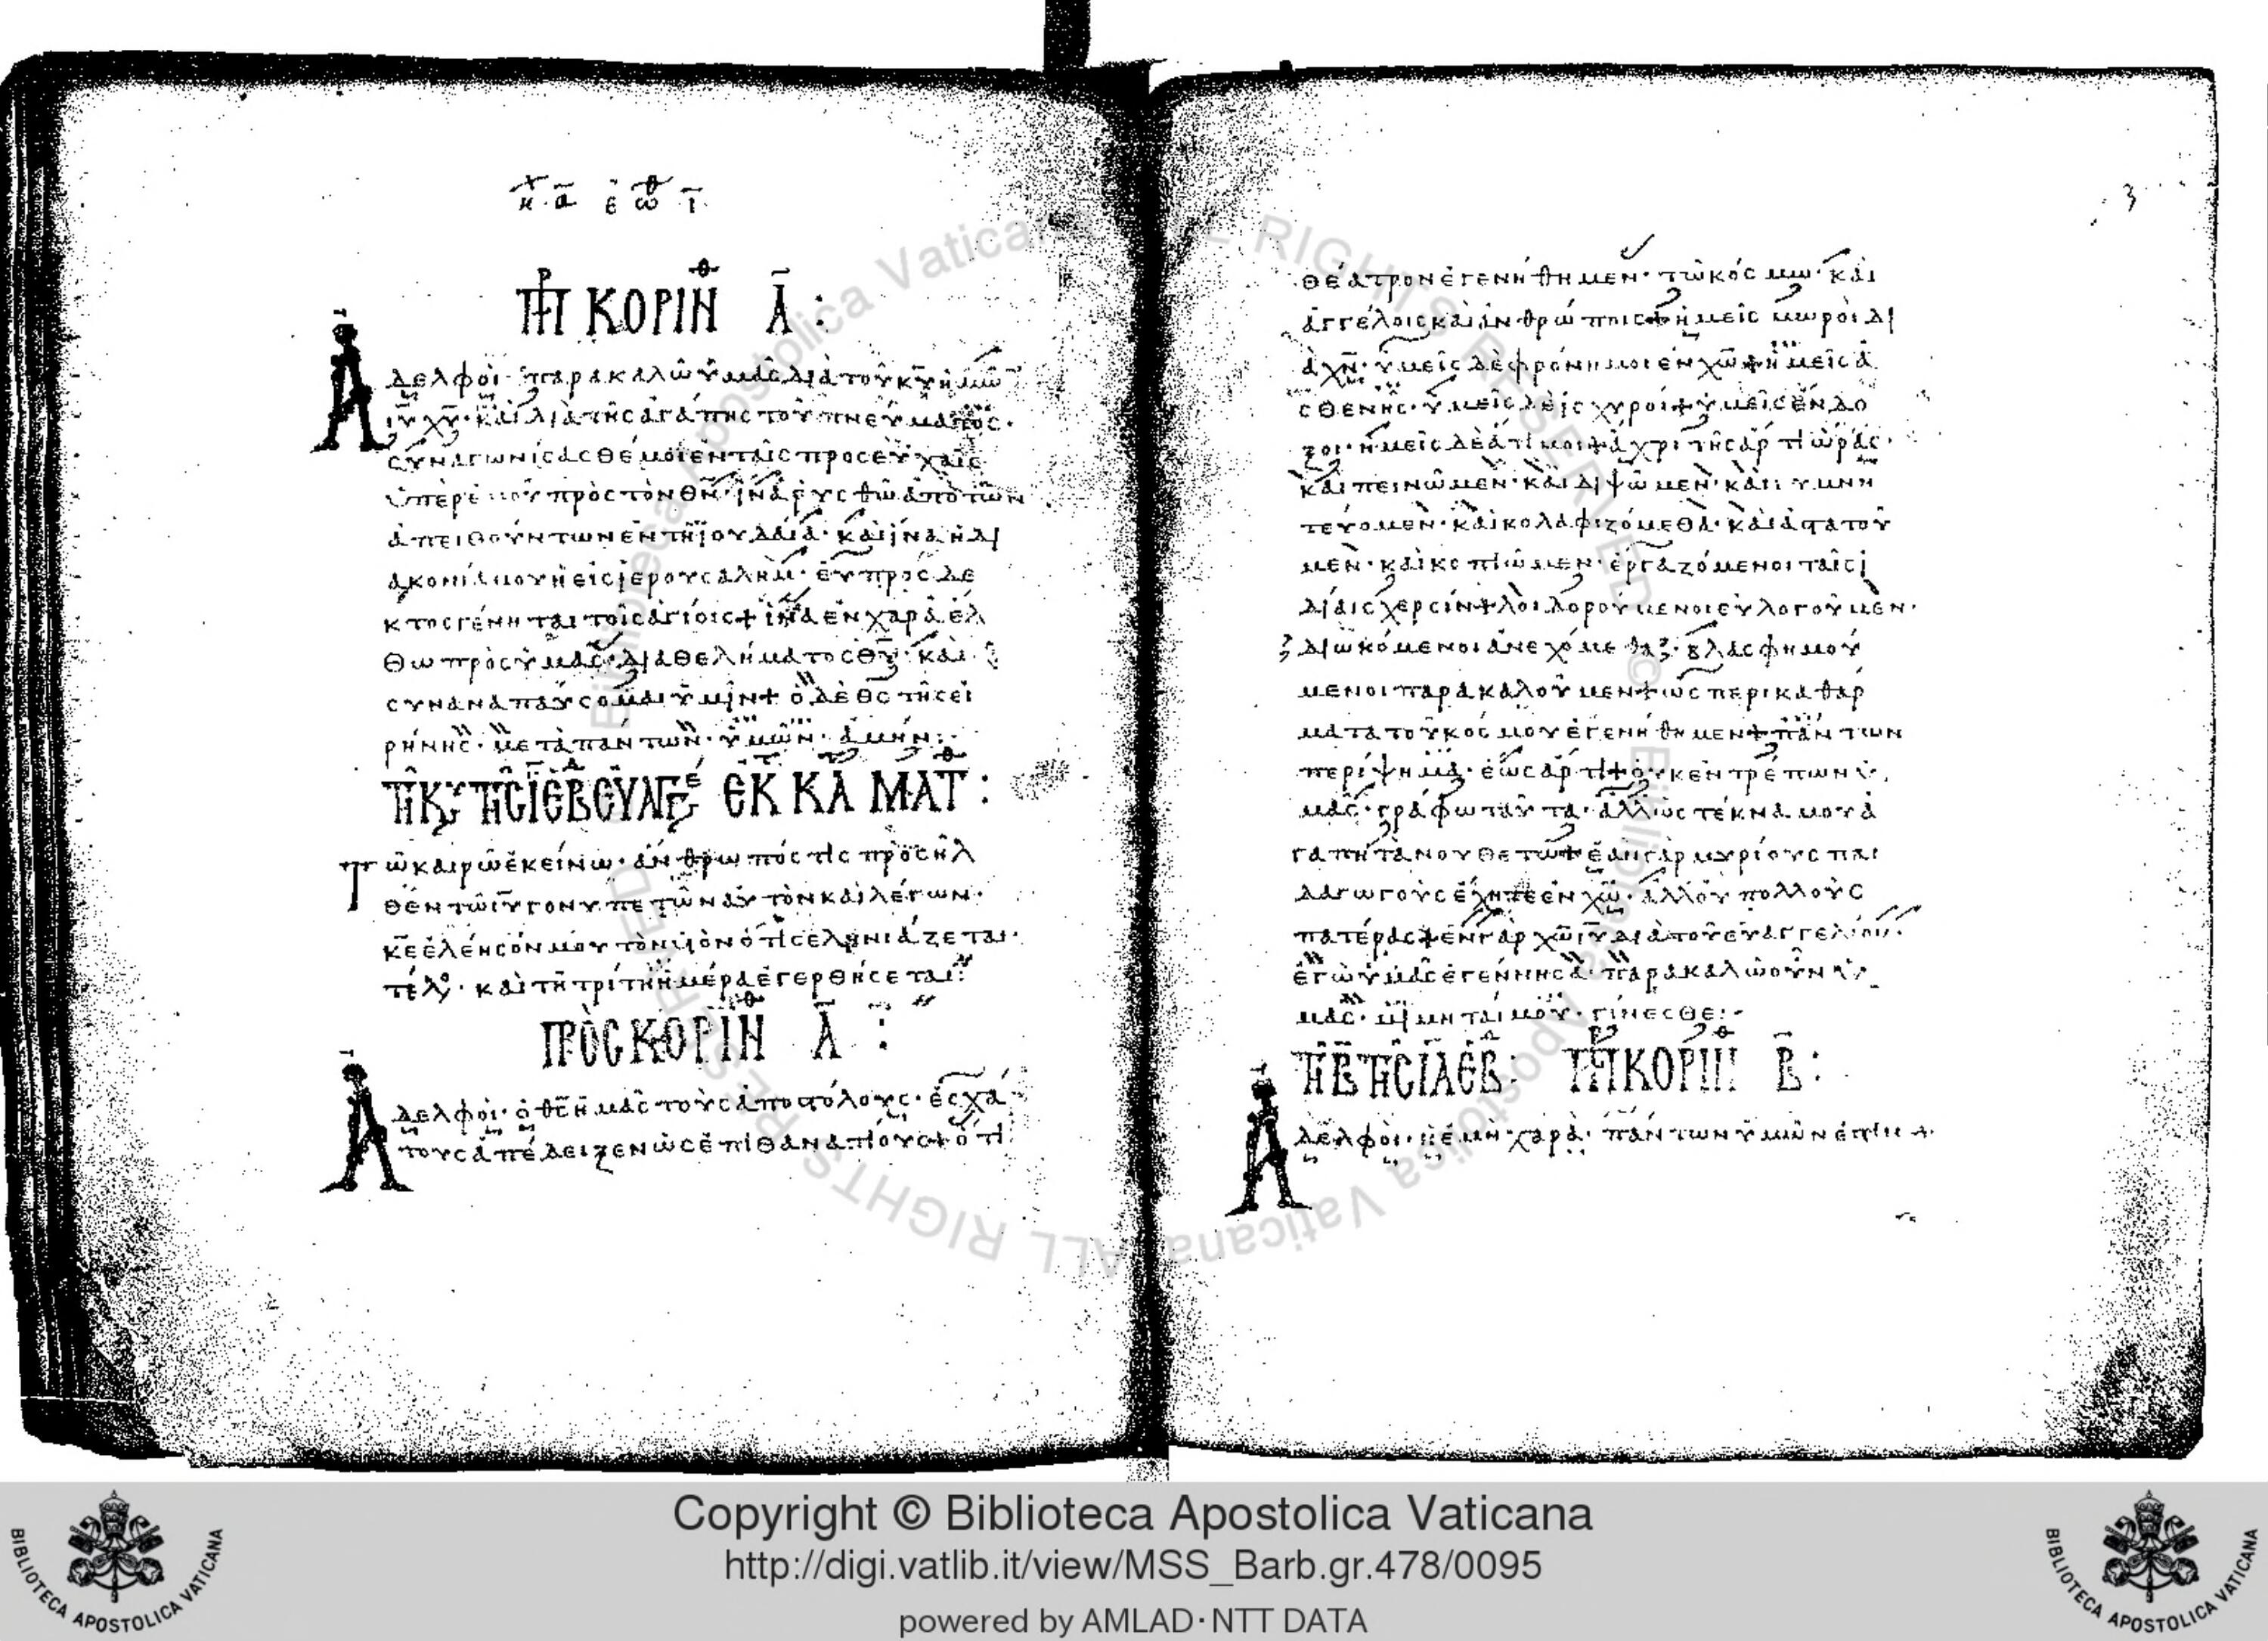 ΠΡ ΚΟΡΙΝΘ Α :
Αδελφοὶ· παρακαλῶ ὑμᾶς διὰ τοῦ κυ ἡμῶν
ιυ χυ· καὶ διὰ τῆς ἀγάπης τοῦ πνεύματος·
συναγωνίσασθέ μοι ἐν ταῖς προσευχαῖς
ὑπὲρ ἐμοῦ πρὸς τὸν θν· ἵνα ῥυσθῶ ἀπὸ τῶν
ἀπειθούντων ἐν τῇ ἰουδαία· καὶ ἵνα ἡ δι
ακονία μου ἡ εἰς ἱερουσαλήμ· εὐπρόσδε
κτος γένηται τοῖς ἁγίοις + ἵνα ἐν χαρᾶ ἔλ
θω πρὸς ὑμᾶς· διὰ θελήματος θυ· καὶ
συναναπαύσομαι ὑμῖν + ὁ δὲ θς τῆς εἰ
ρήνης· μετὰ πάντων· ὑμῶν· ἀμήν:
ΕΚ ΚΑ ΜΑΤΘ :
Τῶ καιρῶ ἐκείνω· ἄνθρωπός τις προσῆλ
θεν τῶ ιυ γονυπετῶν αὐτὸν καὶ λέγων·
κε ἐλέησόν μου τὸν υἱὸν ὅτι σεληνιάζεται·
τέλ· καὶ τῆ τρίτη ἡμέρα ἐγερθήσεται:
ΠΡΟΣ ΚΟΡΙΝΘ Α :
Αδελφοὶ· ὁ θς ἡμᾶς τοὺς ἀποστόλους· ἐσχά
τους ἀπέδειξεν ὡς ἐπιθανατίους + ὅτι
θέατρον ἐγενήθημεν· τῶ κόσμω· καὶ
ἀγγέλοις καὶ ἀνθρώποις + ἡμεῖς μωροὶ δι
ὰ χν· ὑμεῖς δὲ φρόνιμοι ἐν χω + ἡμεῖς ἀ
σθενῆς· ὑμεῖς δὲ ἰσχυροί + ὑμεῖς ἔνδο
ξοι· ἡμεῖς δὲ ἄτιμοι + ἄχρι τῆς ἄρτι ὥρας·
καὶ πεινῶμεν· καὶ διψῶμεν· καὶ γυμνη
τεύομεν· καὶ κολαφιζόμεθα· καὶ ἀστατοῦ
μεν· καὶ κοπιῶμεν· ἐργαζόμενοι ταῖς ἰ
δίαις χερσίν + λοιδορούμενοι εὐλογοῦμεν·
διωκόμενοι ἀνεχόμεθα· βλασφημού
μενοι παρακαλοῦμεν + ὡς περικαθάρ
ματα τοῦ κόσμου ἐγενήθημεν + πάντων
περίψημα· ἕως ἄρτι + οὐκ ἐντρέπων ὑ
μᾶς· γράφω ταῦτα· ἀλλ ὡς τέκνα μου ἀ
γαπητὰ νουθετῶ + ἐὰν γὰρ μυρίους παι
δαγωγοὺς ἔχητε ἐν χω· ἀλλ οὐ πολλοὺς
πατέρας + ἐν γὰρ χω ιυ διὰ τοῦ εὐαγγελίου·
ἐγὼ ὑμᾶς ἐγέννησα· παρακαλῶ οὖν ὑ
μᾶς· μιμηταί μου· γίνεσθε:
ΠΡ ΚΟΡΙΝ Β :
Αδελφοὶ· ἡ ἐμὴ χαρὰ· πάντων ὑμῶν ἐστιν +
Copyright © Biblioteca Apostolica Vaticana
http://digi.vatlib.it/view/MSS_Barb.gr.478/0095
powered by AMLAD·NTT DATA
BIBLIOTECA APOSTOLICA VATICANA
BIBLIOTECA APOSTOLICA VATICANA